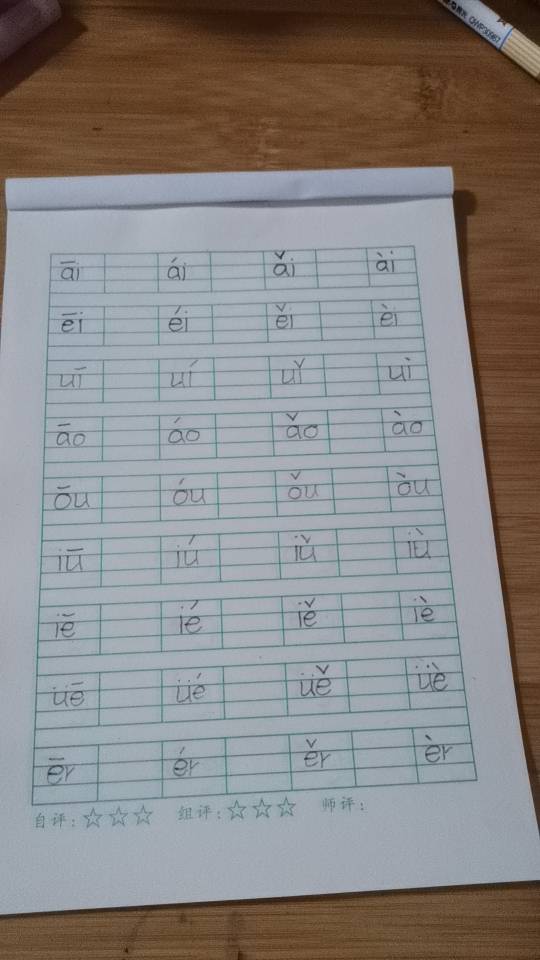 āi ái ǎi ài
ēi éi ěi èi
uī uí uǐ uì
āo áo ǎo ào
ōu óu ǒu òu
iū iú iǔ iù
iē ié iě iè
üē üé üě üè
ēr ér ěr èr
自评：☆☆☆ 组评：☆☆☆ 师评：